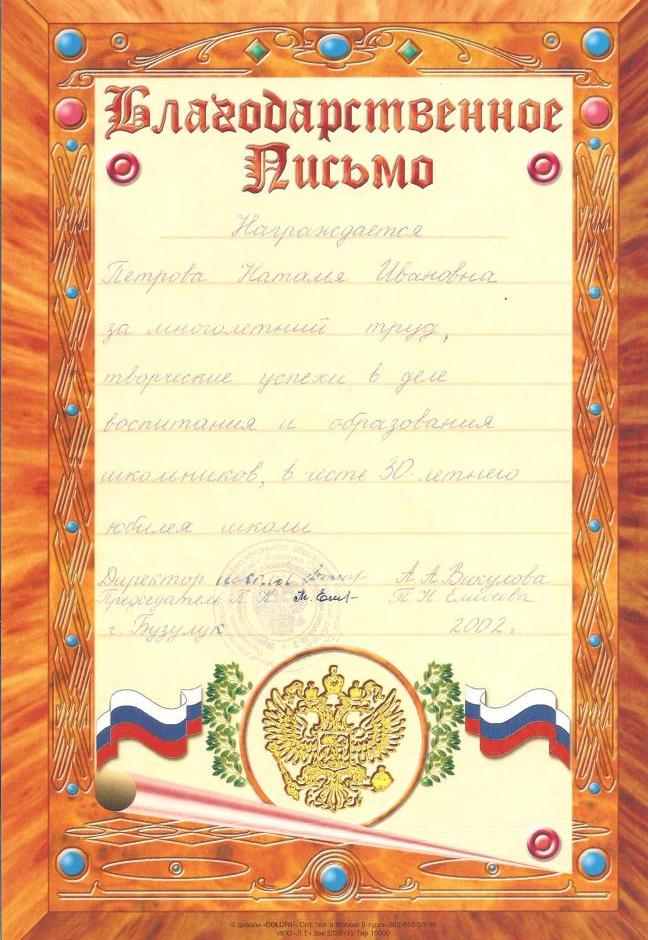 Благодарственное
Письмо
Награждается
Петрова Наталия Ивановна
за многолетний труд,
творческие успехи в деле
воспитания и образования
школьников, в честь 30-летнего
юбилея школы
Директор А. А. Викулова
Председатель П К Т Н Елисеева
г. Бузулук 2002 г.